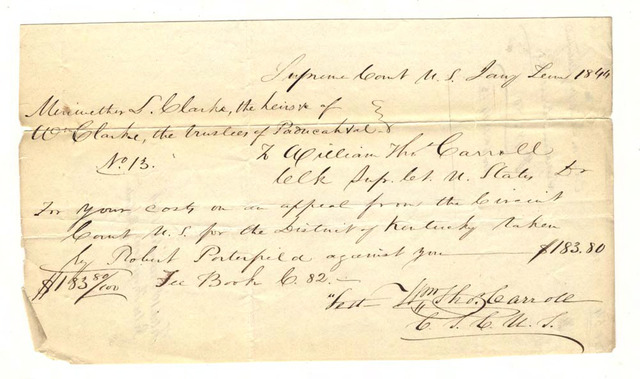 Supreme Court U. S. Jany Term 1844
Meriwether L. Clarke, the heirs &c of
Wm Clarke, the trustees of Paducah &al.
No 13.
To William Thos. Carroll
Clk Sup. Ct. U. States Dr
For your costs on an appeal from the Circuit
Court U. S. for the District of Kentucky taken
by Robert Porterfield against you — $183.80
$183 80/100 Fee Book C. 82. —
"Test Wm Thos. Carroll
C. S. C. U. S.